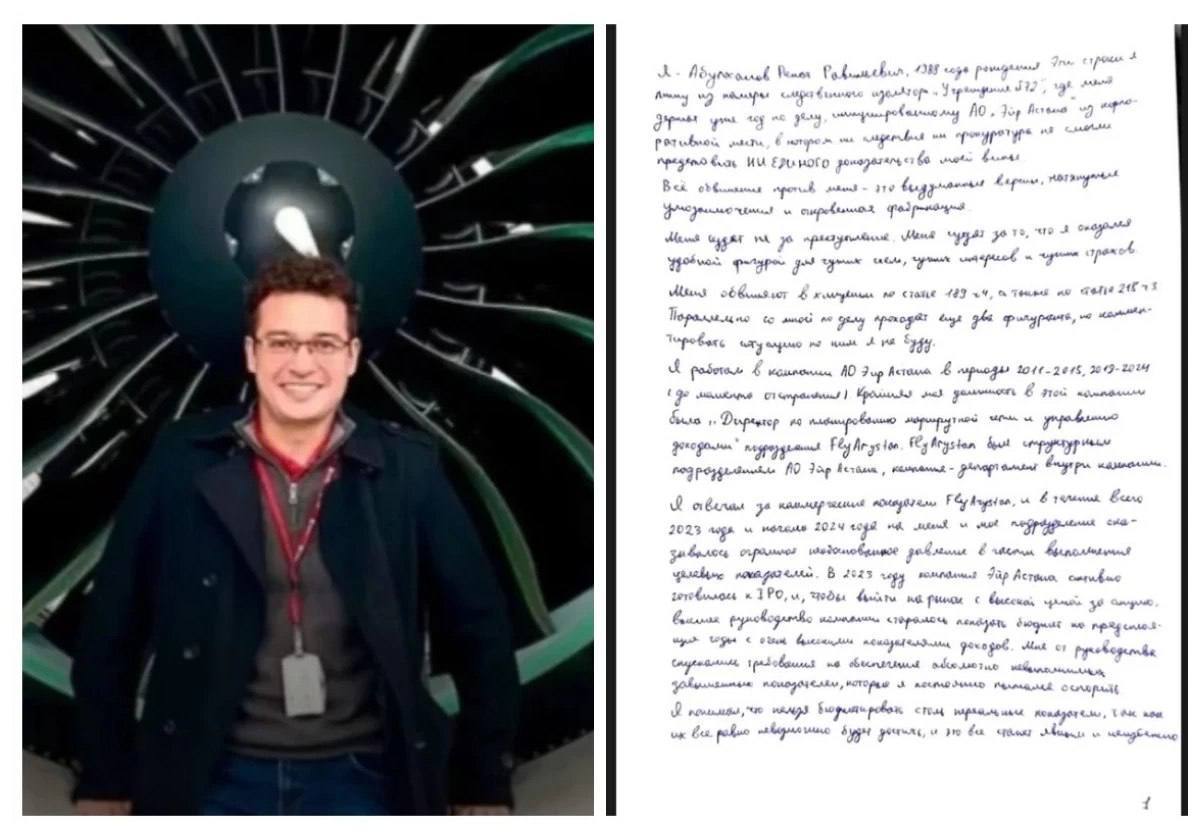 Я - Абулханов Ренат Равильевич, 1988 года рождения. Эти строки я
пишу из камеры следственного изолятора „Учреждения 72“, где меня
держат уже год по делу, инициированному АО „Эйр Астана“ из корпо-
ративной мести, в котором ни следствие ни прокуратура не смогли
предоставить НИ ЕДИНОГО доказательства моей вины.
Всё обвинение против меня - это выдуманные версии, натянутые
умозаключения и откровенная фабрикация.
Меня судят не за преступление. Меня судят за то, что я оказался
удобной фигурой для чужих схем, чужих интересов и чужих страхов.
Меня обвиняют в хищении по статье 189 ч4, а также по статье 218 ч3
Параллельно со мной по делу проходят еще два фигуранта, но коммен-
тировать ситуацию по ним я не буду.
Я работал в компании АО Эйр Астана в периоды 2011-2015, 2019-2024
(до момента отстранения) Крайняя моя должность в этой компании
была „Директор по планированию маршрутной сети и управлению
доходами“ подразделения FlyArystan. FlyArystan был структурным
подразделением АО Эйр Астана, компания-департамент внутри компании.
Я отвечал за коммерческие показатели FlyArystan, и в течение всего
2023 года и начало 2024 года на меня и мое подразделение ока-
зывалось огромное необоснованное давление в части выполнения
целевых показателей. В 2023 году компания Эйр Астана активно
готовилась к IPO, и, чтобы выйти на рынок с высокой ценой за акцию,
высшее руководство компании старалось показать бюджет на предстоя-
щие годы с очень высокими показателями доходов. Мне от руководства
спускались требования на обеспечение абсолютно невыполнимых
завышенных показателей, которые я постоянно пытался оспорить
Я понимал, что нельзя бюджетировать столь нереальные показатели, так как
их все равно невозможно будет достичь, и это все станет явным и неизбежно
1